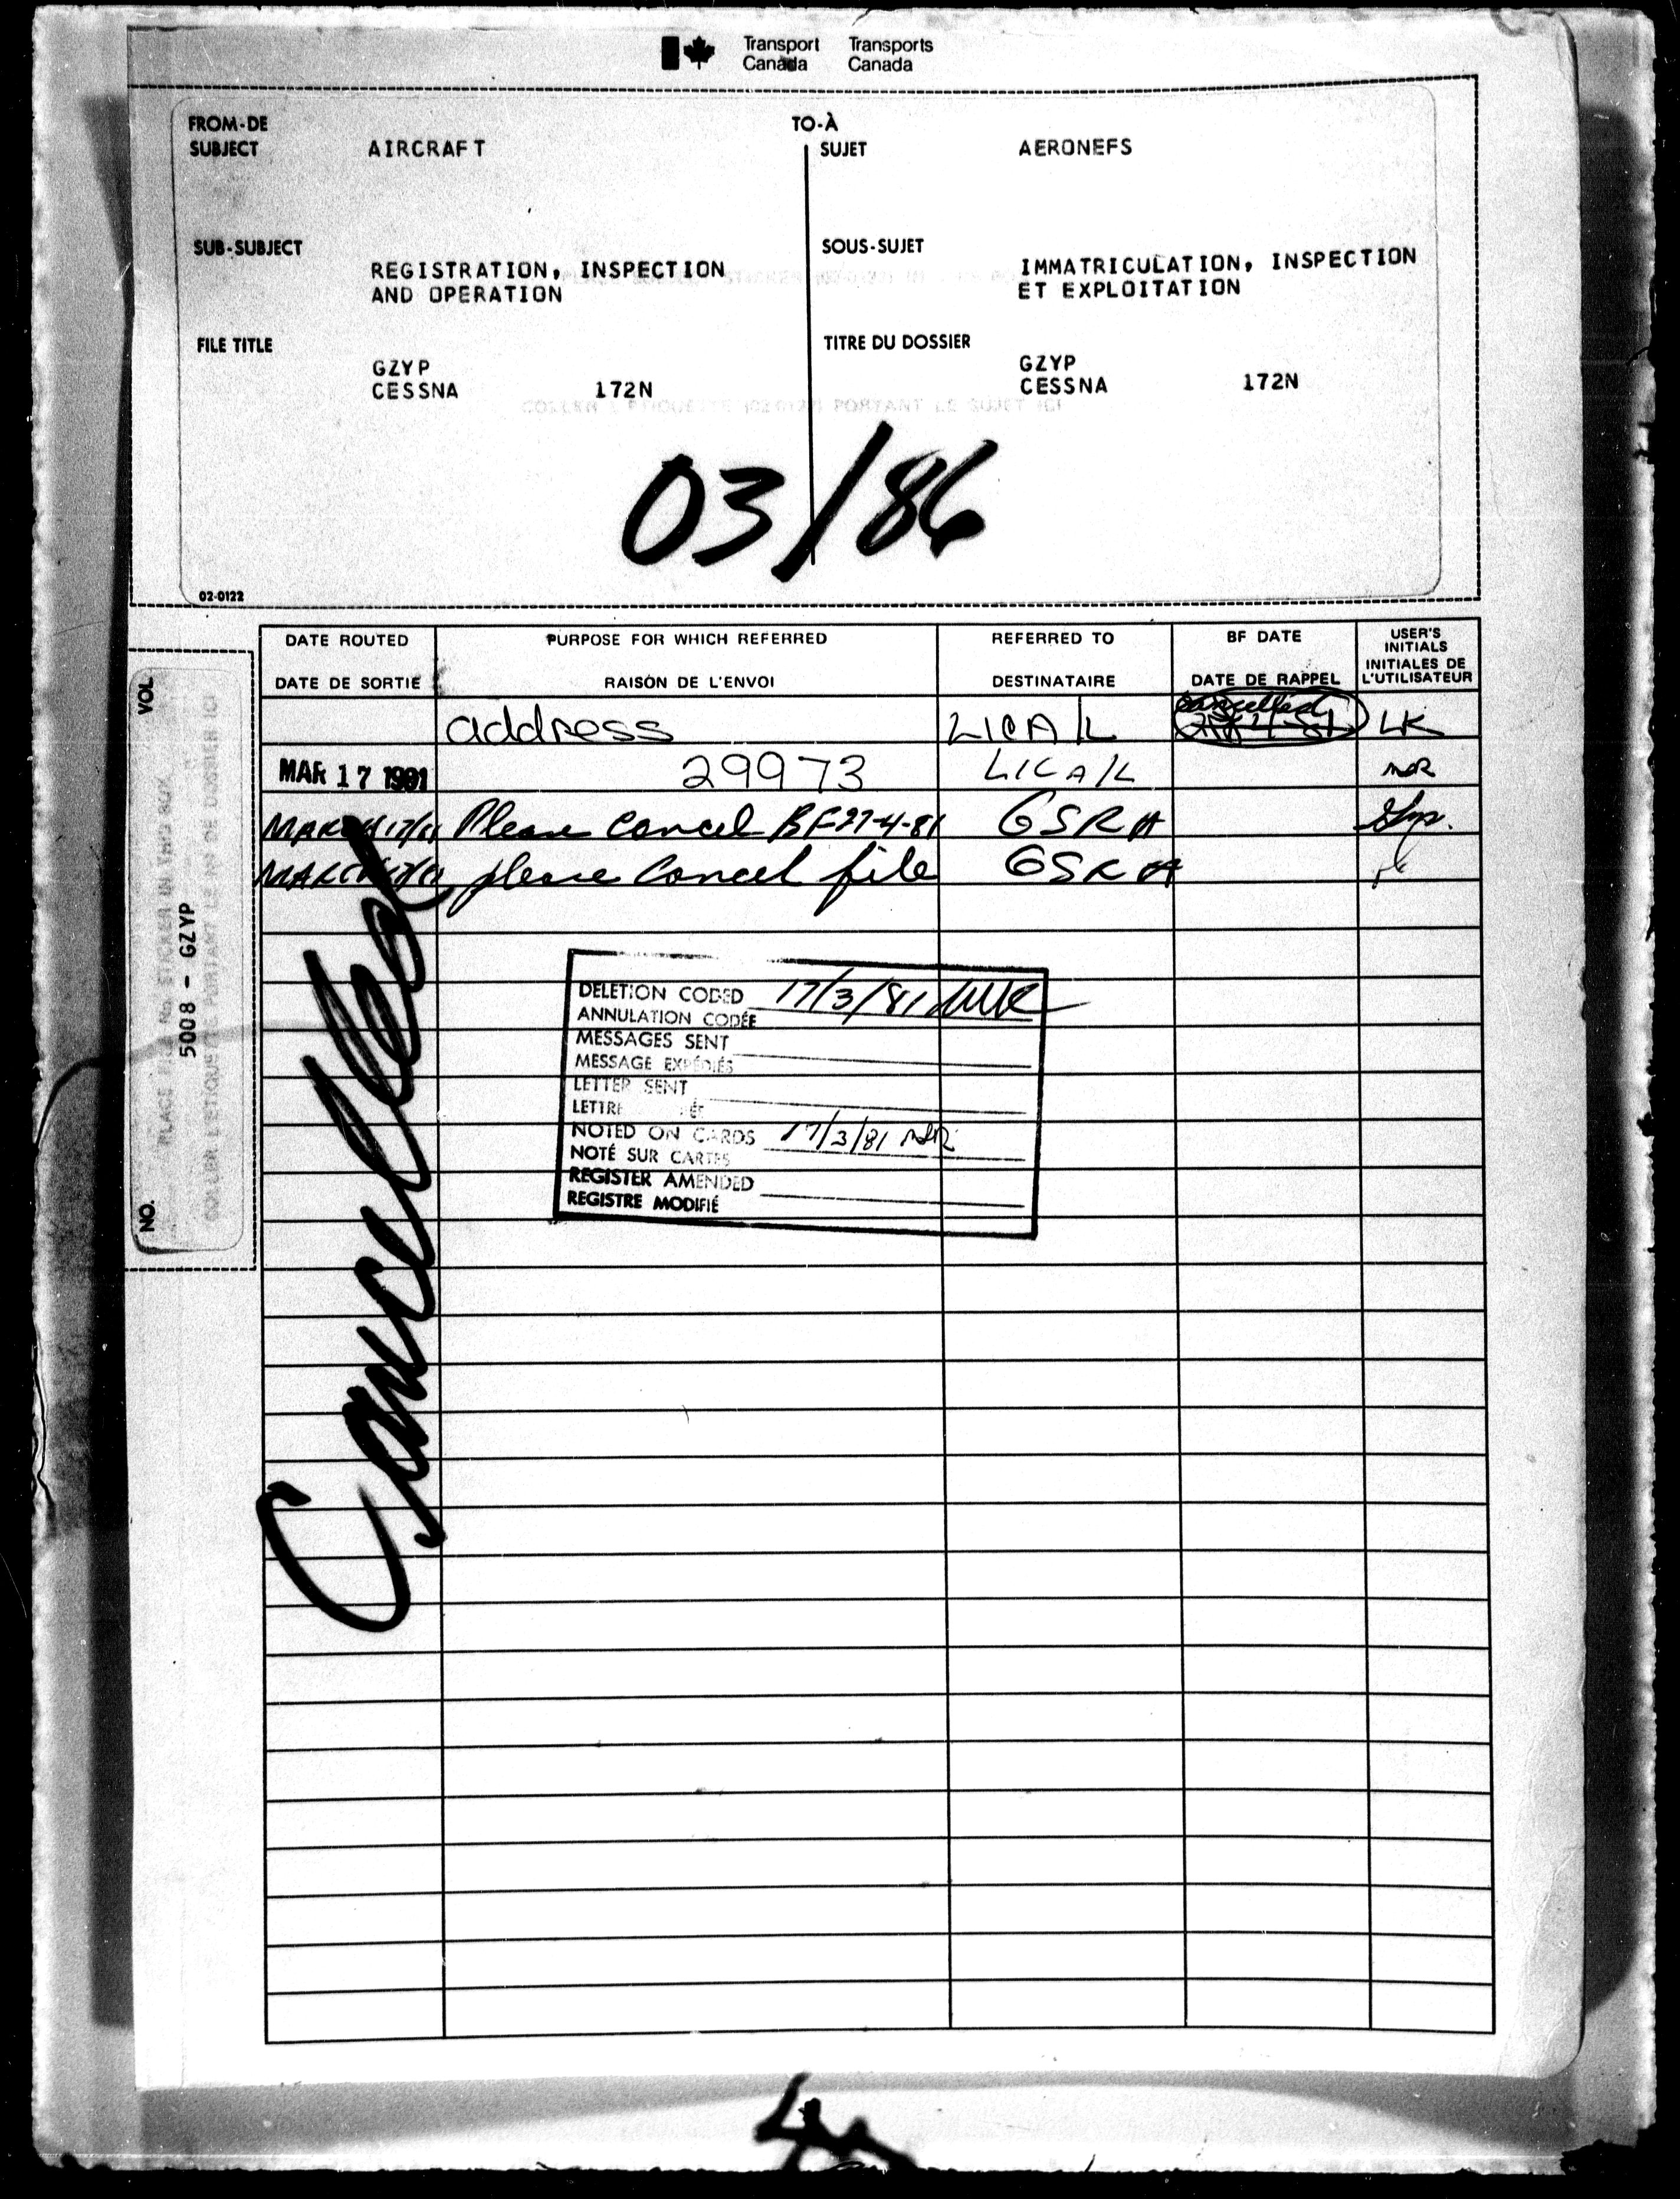 Transport Transports
Canada Canada
FROM-DE TO-À
SUBJECT AIRCRAFT SUJET AERONEFS
SUB-SUBJECT SOUS-SUJET
REGISTRATION, INSPECTION IMMATRICULATION, INSPECTION
AND OPERATION ET EXPLOITATION
FILE TITLE TITRE DU DOSSIER
GZYP GZYP
CESSNA 172N CESSNA 172N
COLLER L'ETIQUETTE PORTANT LE SUJET ICI
03/86
02-0122
DATE ROUTED PURPOSE FOR WHICH REFERRED REFERRED TO BF DATE USER'S INITIALS
DATE DE SORTIE RAISON DE L'ENVOI DESTINATAIRE DATE DE RAPPEL INITIALES DE L'UTILISATEUR
address LICA/L cancelled LK
MAR 17 1981 29973 LICA/L
MARCH 17/81 Please cancel BF 27-4-81 GSRA
MARCH please cancel file GSRA
Cancelled
DELETION CODED 17/3/81
ANNULATION CODÉE
MESSAGES SENT
MESSAGE EXPÉDIÉS
LETTER SENT
LETTRE
NOTED ON CARDS 17/3/81
NOTÉ SUR CARTES
REGISTER AMENDED
REGISTRE MODIFIÉ
NO. VOL.
PLACE FILE No. STICKER IN THIS BOX
5008 - GZYP
COLLER L'ETIQUETTE PORTANT LE No DE DOSSIER ICI